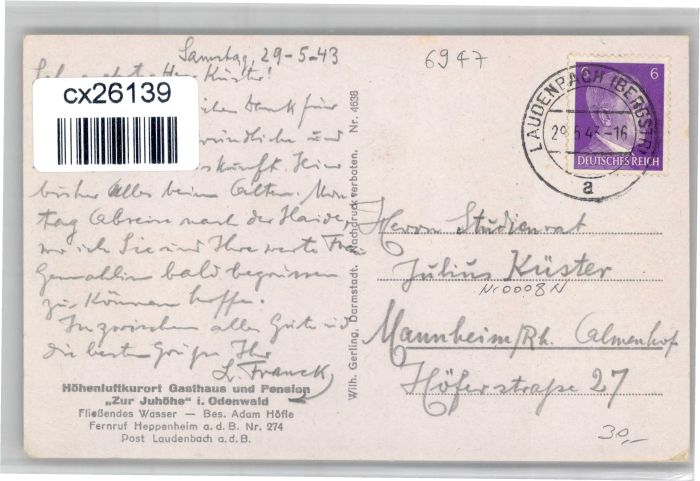 Samstag, 29-5-43
Herr Küster!
cx26139
Dank für
und
Hier
bisher Alles beim Alten. Mon
tag Abreise nach der Haide,
wo ich Sie und Ihre werte Frau
Gemahlin bald begrüssen
zu können hoffe.
Inzwischen alles Gute und
die besten Grüße Ihr
L. Franck
Höhenluftkurort Gasthaus und Pension
„Zur Juhöhe“ i. Odenwald
Fließendes Wasser — Bes. Adam Höfle
Fernruf Heppenheim a. d. B. Nr. 274
Post Laudenbach a.d.B.
Wilh. Gerling, Darmstadt. Nachdruck verboten. Nr. 4638
6947
6 6
DEUTSCHES REICH
LAUDENBACH (BERGSTR)
29.5.43.-16
a
Herrn Studienrat
Julius Küster
Nr0008N
Mannheim/Rh. Almenhof
Höferstraße 27
30,-